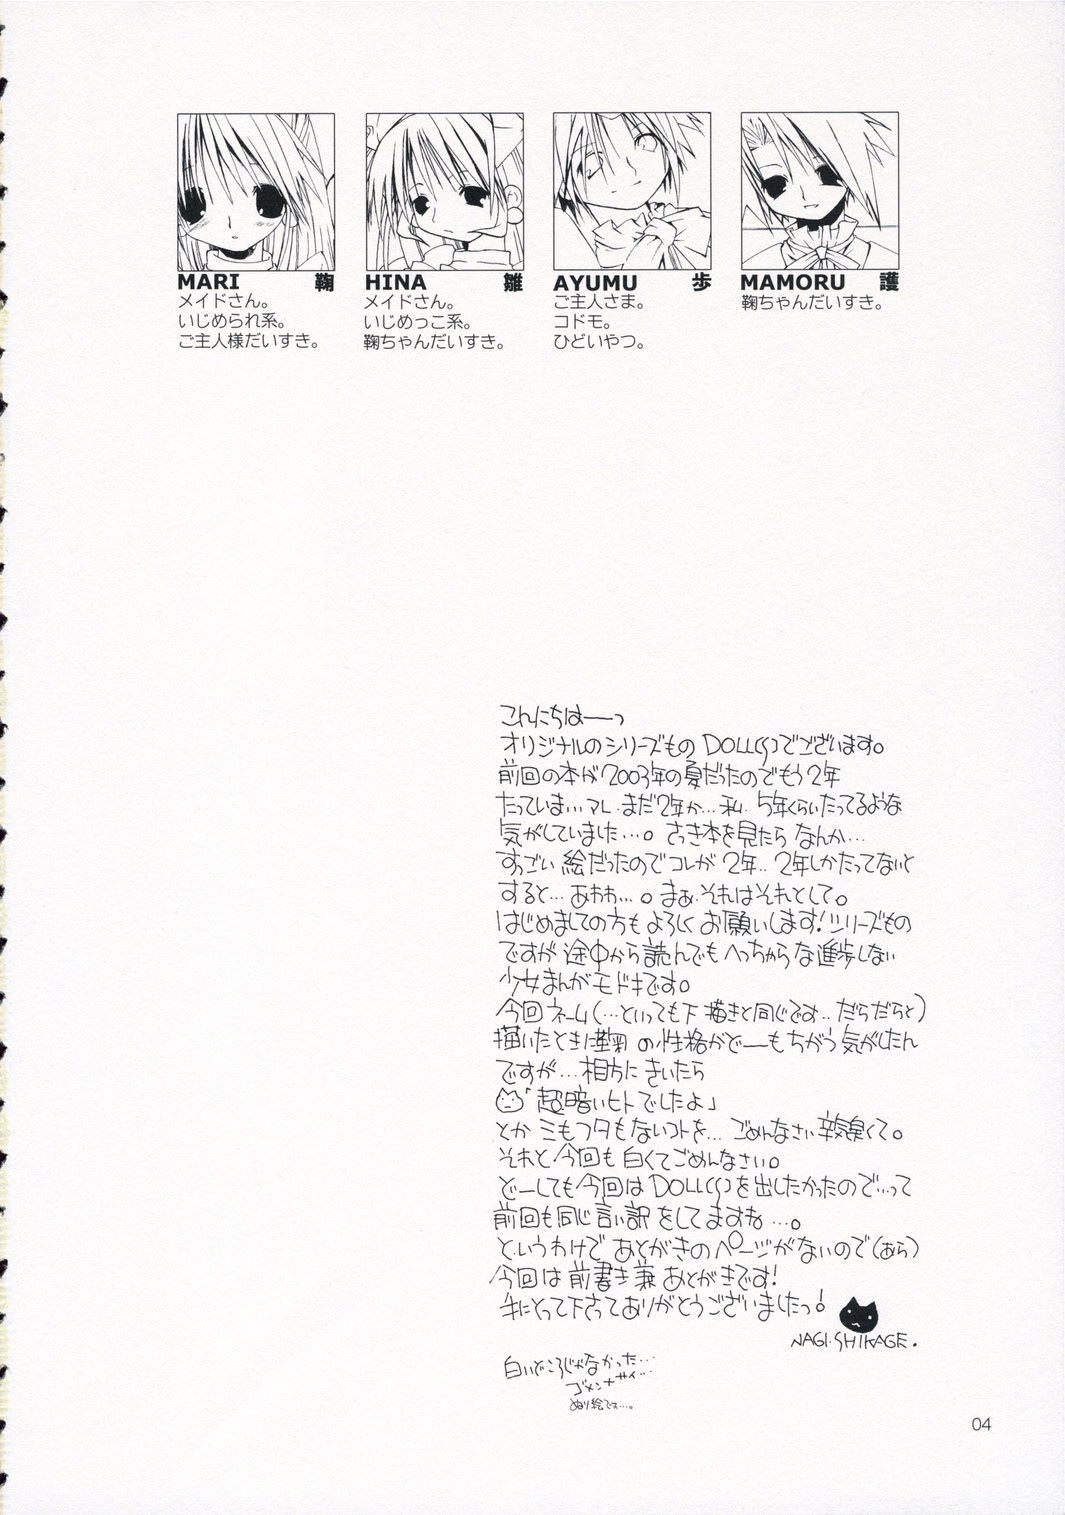 MARI 鞠
メイドさん。
いじめられ系。
ご主人様だいすき。
HINA 雛
メイドさん。
いじめっこ系。
鞠ちゃんだいすき。
AYUMU 歩
ご主人さま。
コドモ。
ひどいやつ。
MAMORU 護
鞠ちゃんだいすき。
こんにちはーっ
オリジナルのシリーズもの DOLL(S)でございます。
前回の本が2003年の夏だったのでもう2年
たっていま…マレ.まだ2年か…私.5年くらいたってるような
気がしていました…。さっき本を見たら なんか…
すっごい 絵だったのでコレが 2年..2年しかたってないと
すると…あわわ…。まぁ.それはそれとして。
はじめましての方も よろしく お願いします!シリーズもの
ですが 途中から読んでもへっちゃらな進歩しない
少女まんがモドキです。
今回ネーム(…といっても下描きと同じです..だらだらと)
描いたときに鞠の性格がどーもちがう気がしたん
ですが…相方に きいたら
「超暗いヒトでしたよ」
とか ミもフタもないコトを… ごめんなさい辛気臭くて。
それと今回も 白くてごめんなさい。
どーしても今回は DOLL(S)を出したかったので…って
前回も同じ言い訳をしてますね…。
というわけで あとがきのページがないので(あら)
今回は 前書き兼 あとがきです!
手にとって下さってありがとうございましたっ!
NAGI.SHIKAGE.
白いどころじゃなかった…
ゴメンナサイ…
ぬり絵でス…。
04